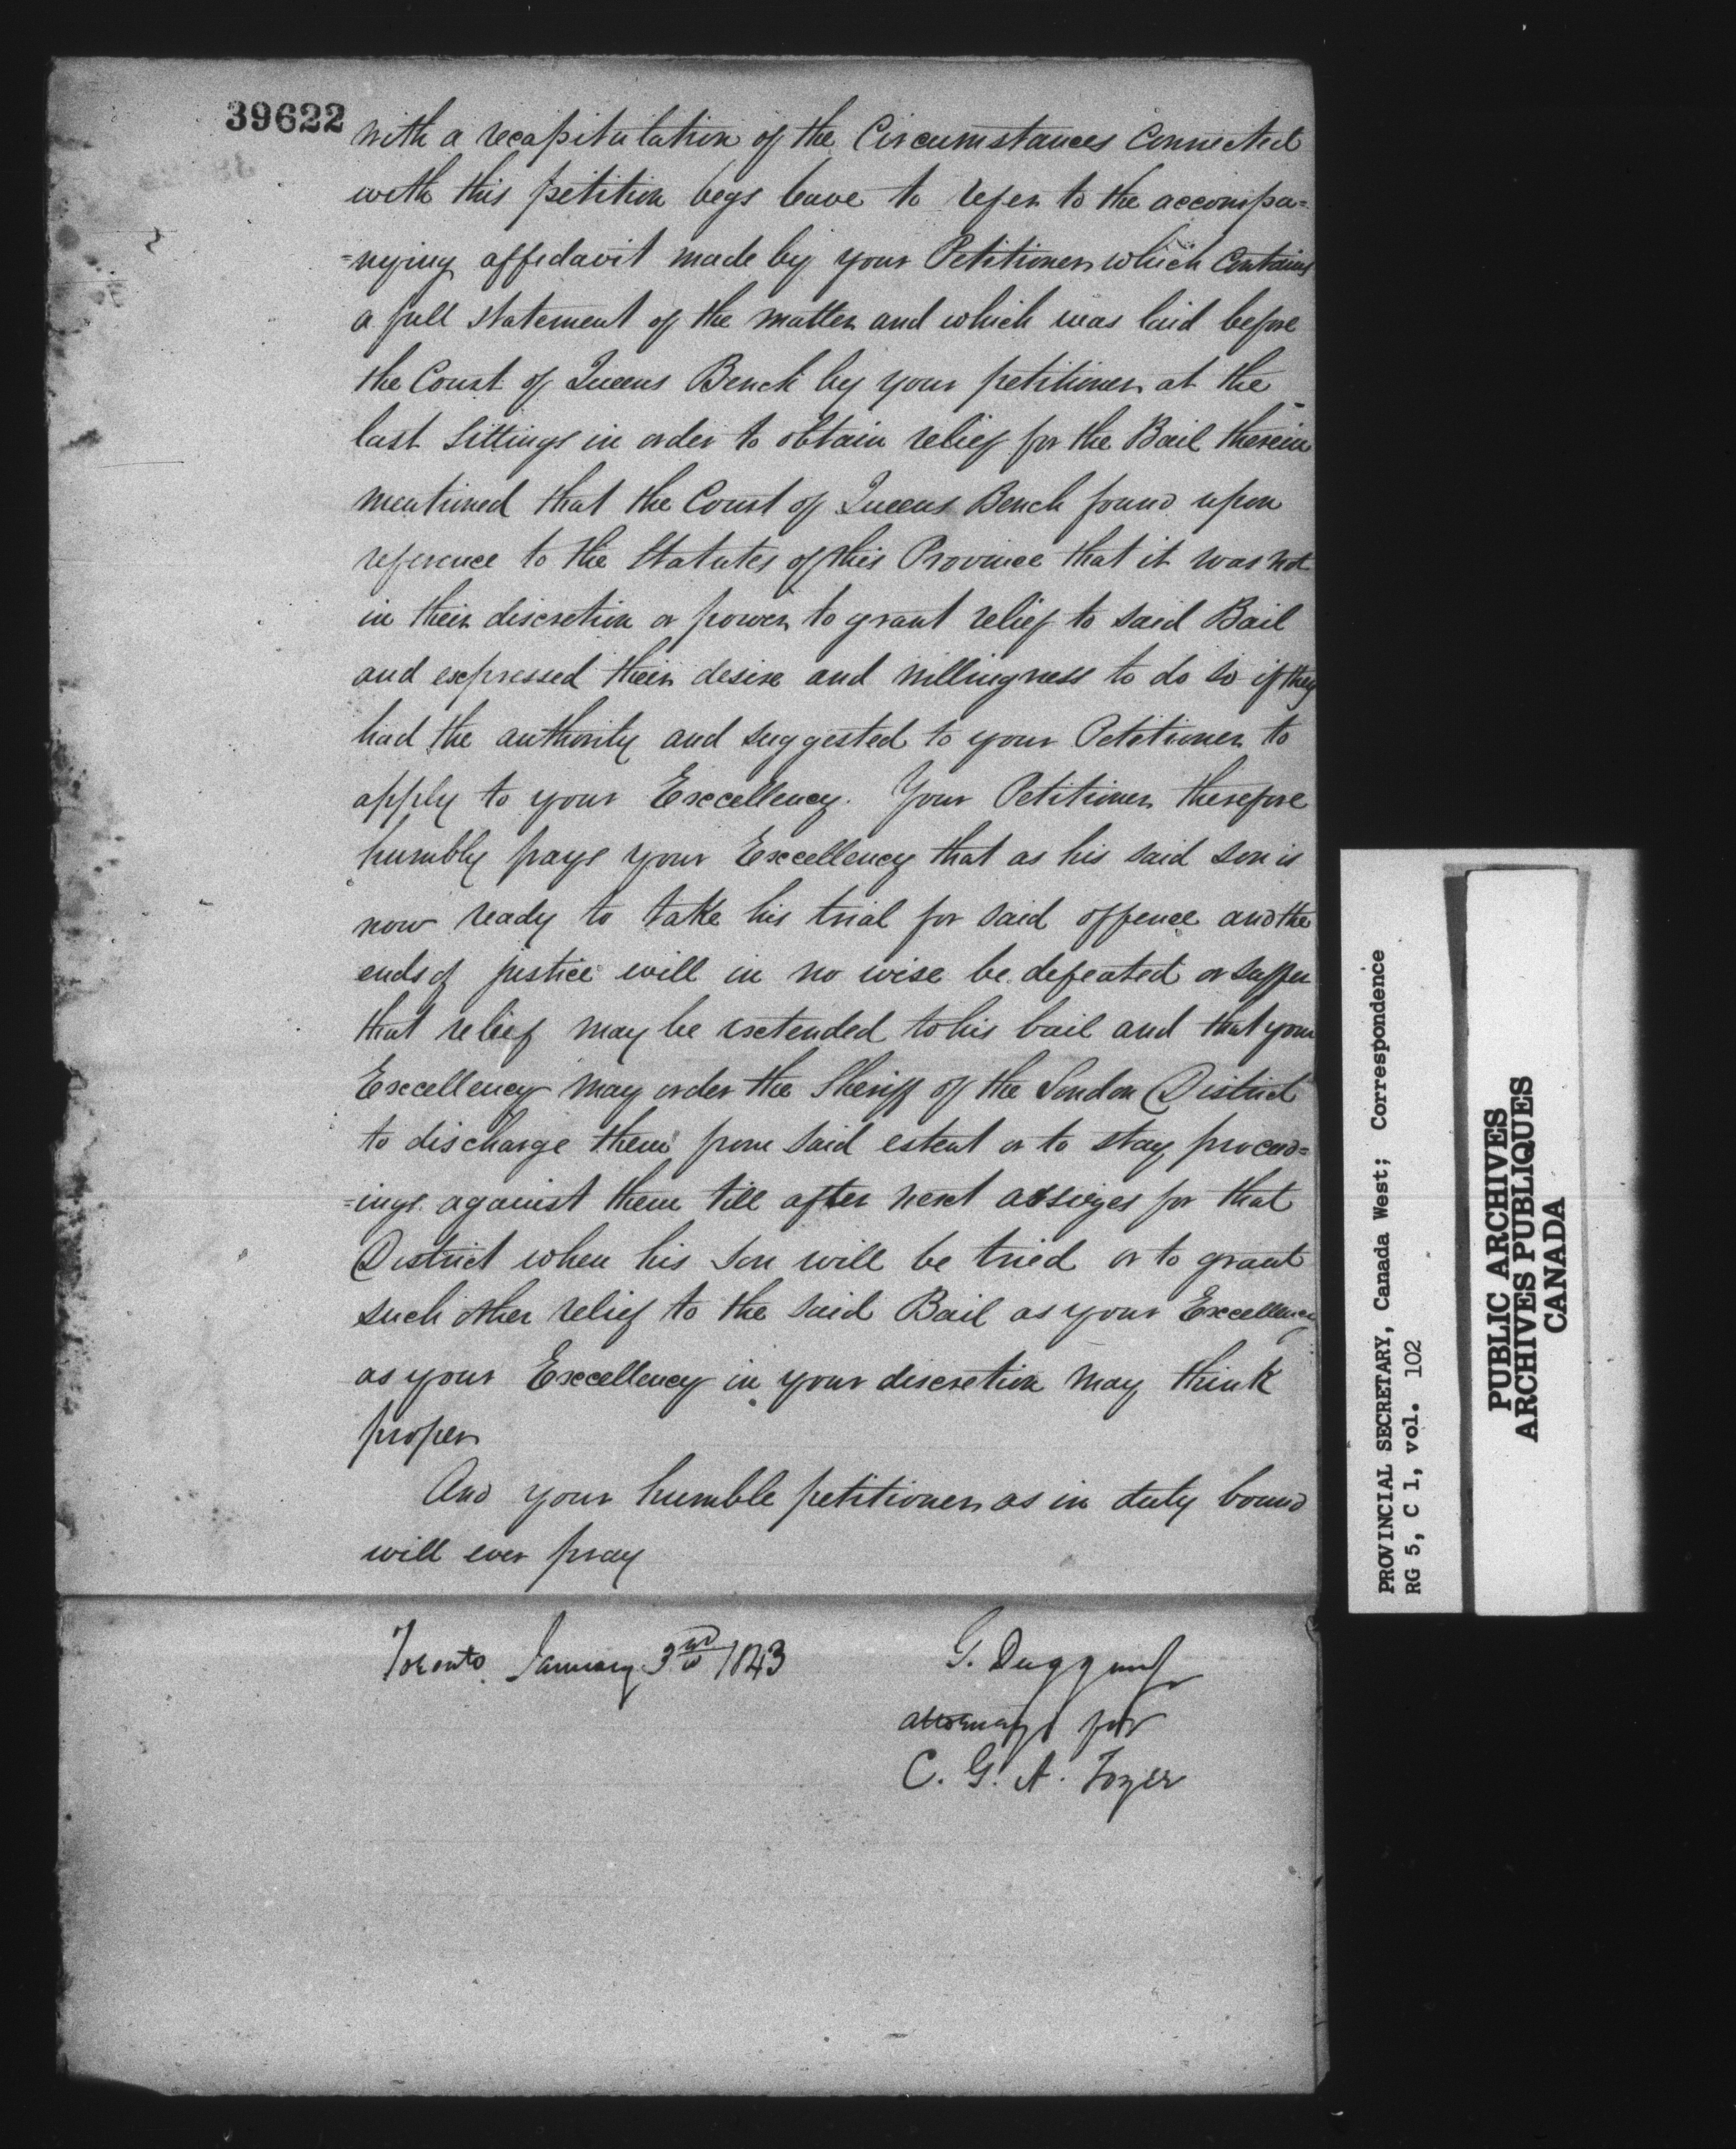 39622
with a recapitulation of the Circumstances Connected
with this petition begs leave to refer to the accompa=
=nying affidavit made by your Petitioner which Contains
a full statement of the matter and which was laid before
the Court of Queens Bench by your petitioner at the
last Sittings in order to obtain relief for the Bail therein
mentioned that the Court of Queens Bench found upon
reference to the Statutes of this Province that it was not
in their discretion or power to grant relief to said Bail
and expressed their desire and willingness to do so if they
had the authority and suggested to your Petitioner to
apply to your Excellency. Your Petitioner therefore
humbly prays your Excellency that as his said son is
now ready to take his trial for said offence and the
ends of justice will in no wise be defeated or suffer
that relief may be extended to his bail and that your
Excellency may order the Sheriff of the London District
to discharge them from said estent or to stay proceed=
=ings against them till after next assizes for that
District when his Son will be tried or to grant
such other relief to the said Bail as your Excellency
as your Excellency in your discretion may think
proper
And your humble petitioner as in duty bound
will ever pray
Toronto January 3rd 1843
G. Duggan
attorney for
C. G. A. Tozer
PROVINCIAL SECRETARY, Canada West; Correspondence
RG 5, C 1, vol. 102
PUBLIC ARCHIVES
ARCHIVES PUBLIQUES
CANADA